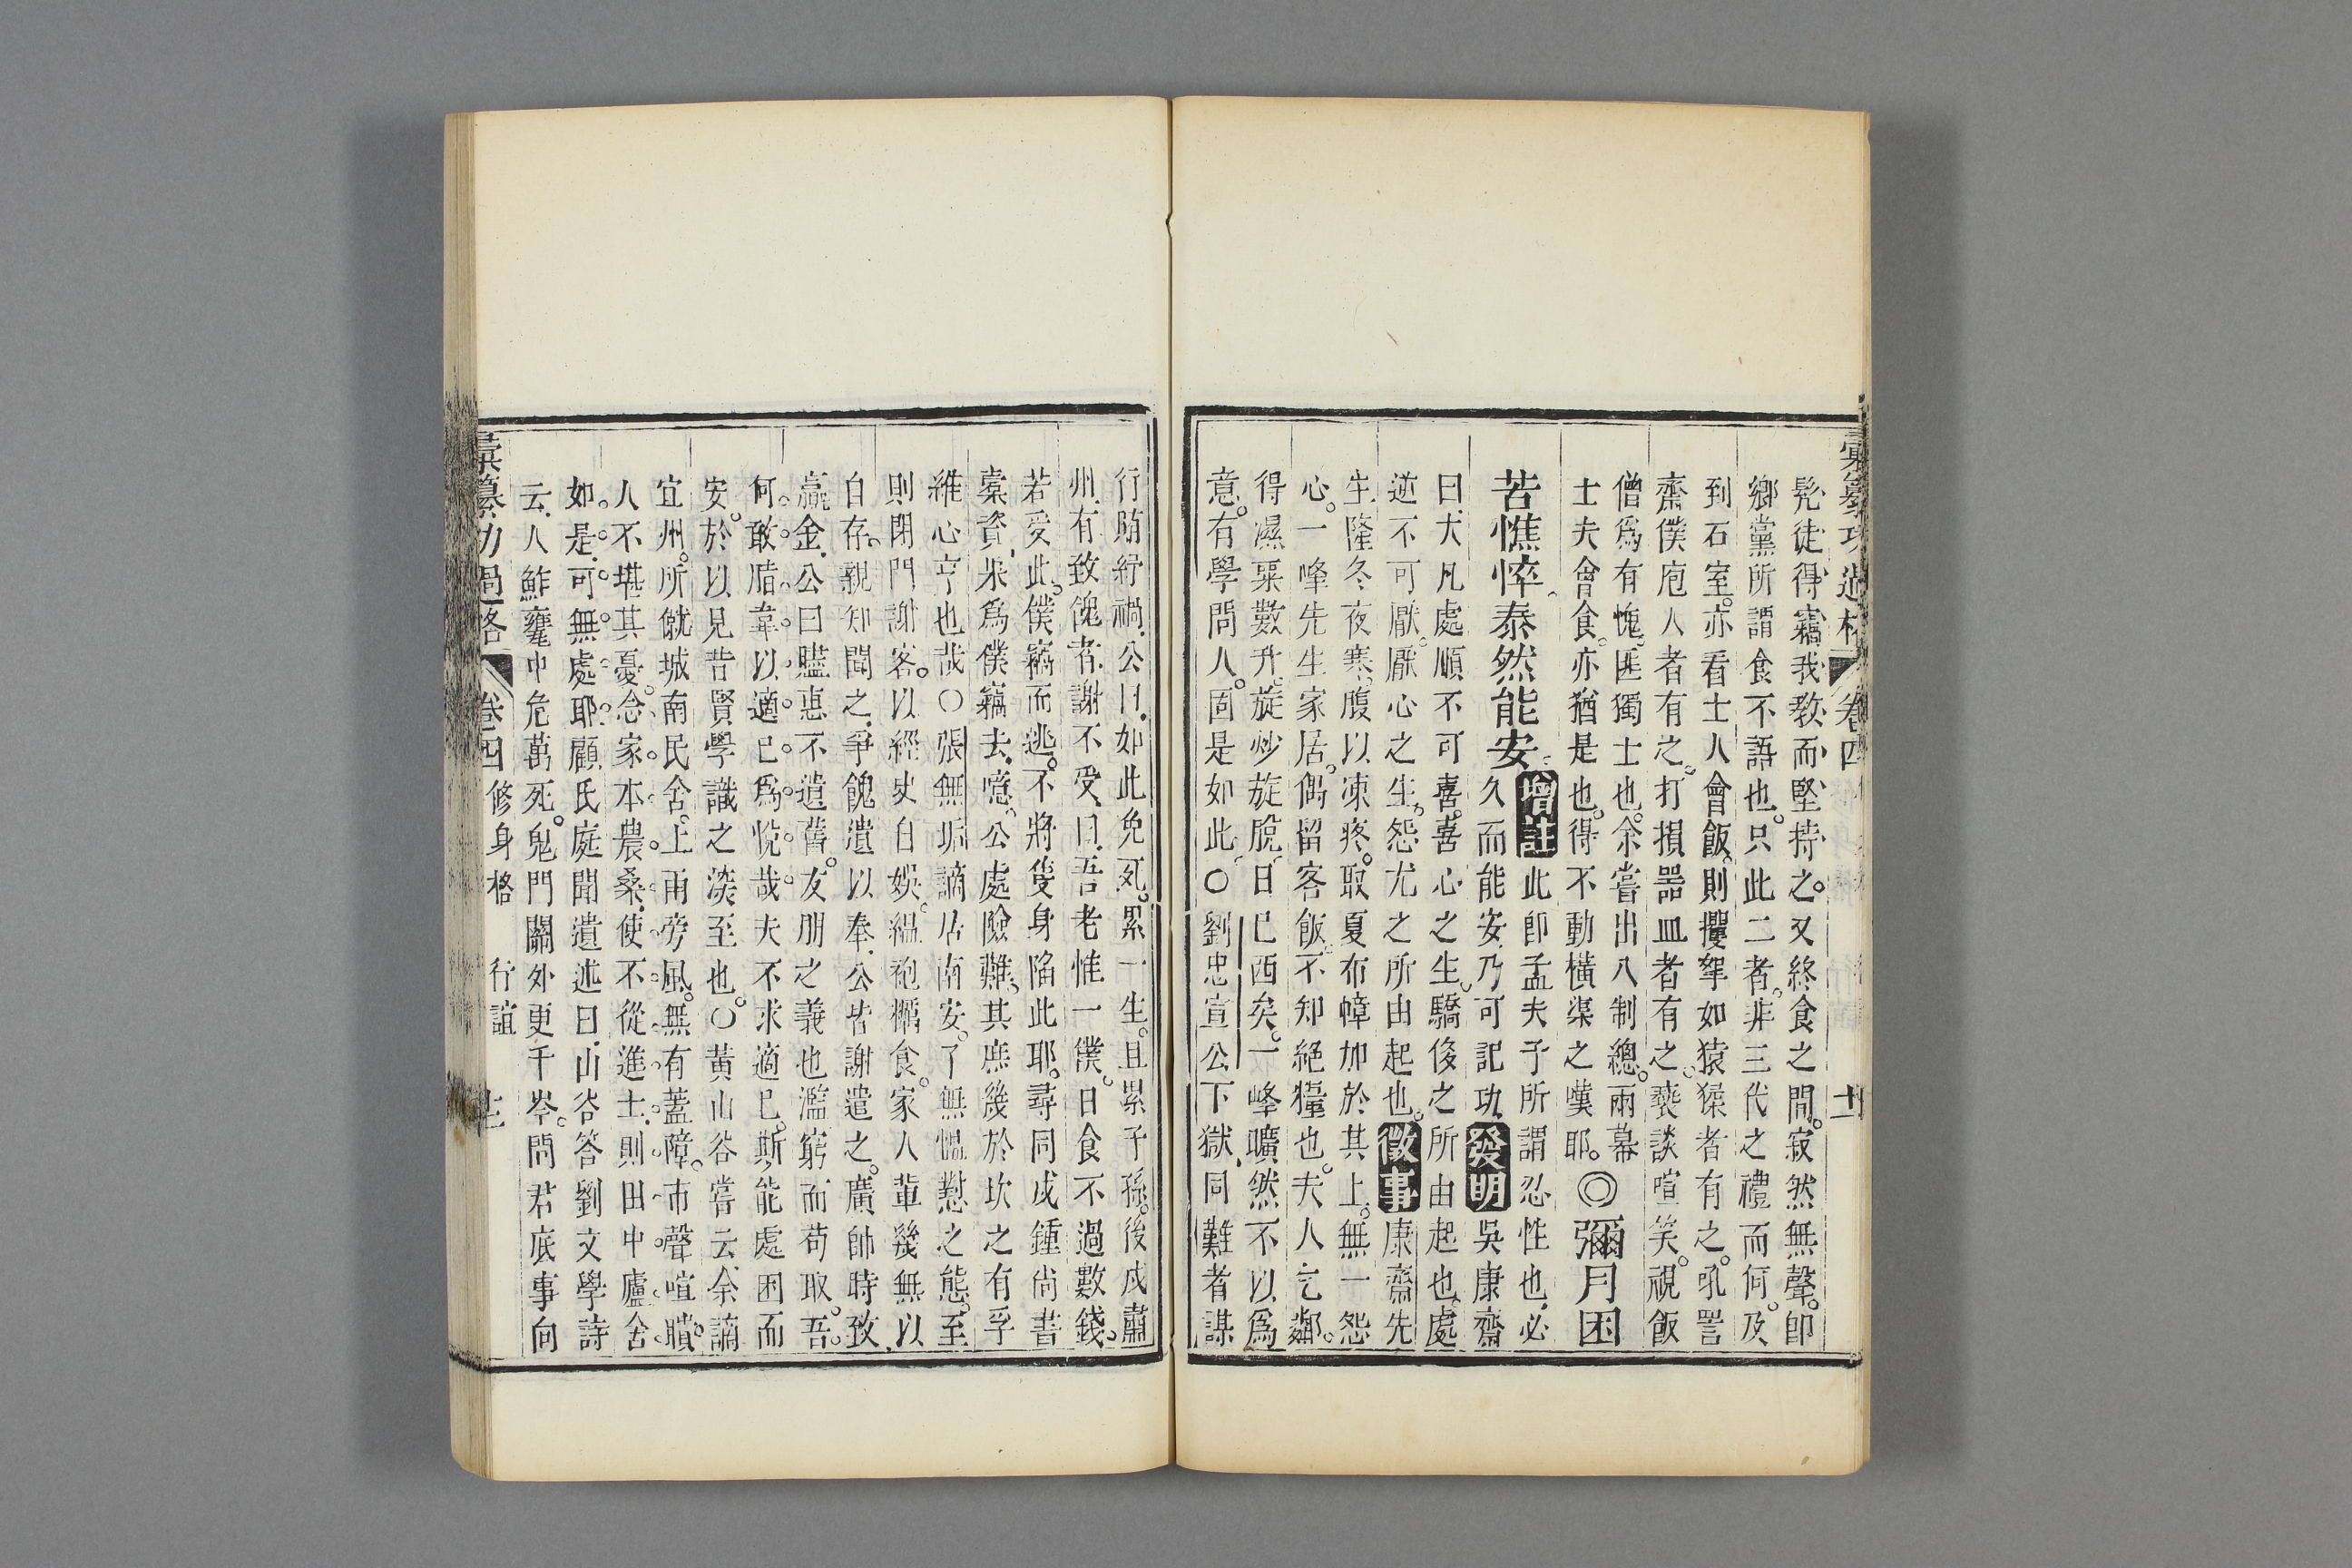 彙纂功過格 卷四 十一
髡徒得竊我教而堅持之又終食之間寂然無聲即
鄉黨所謂食不語也只此二者非三代之禮而何及
到石室亦看士人會飯則攫拏如猿猱者有之吼詈
齋僕庖人者有之打損器皿者有之褻談喧笑視飯
僧爲有愧匪獨士也余嘗出入制總兩幕
士夫會食亦猶是也得不動橫渠之嘆耶◎彌月困
苦憔悴泰然能安
增註 此即孟夫子所謂忍性也必
久而能安乃可記功 發明 吳康齋
曰大凡處順不可喜喜心之生驕侈之所由起也處
逆不可厭厭心之生怨尤之所由起也 徵事 康齋先
生隆冬夜寒腹以凍疼取夏布幛加於其上無一怨
心一峰先生家居偶留客飯不知絕糧也夫人乞鄰
得濕粟數升旋炒旋脫日已西矣一峰曠然不以爲
意有學問人固是如此〇劉忠宣公下獄同難者謀
行賄紓禍公曰如此免死累一生且累子孫後戍蕭
州有致餽者謝不受曰吾老惟一僕日食不過數錢
若受此僕竊而逃不將隻身陷此耶尋同戍鍾尚書
橐資果爲僕竊去噫公處險難其庶幾於坎之有孚
維心亨也哉〇張無垢謫居南安了無慍懟之態至
則閉門謝客以經史自娛縕袍糲食家人輩幾無以
自存親知聞之爭餽遺以奉公皆謝遣之廣帥時致
羸金公曰賢惠不遺舊友朋之義也濫窮而苟取吾
何敢脂韋以適己爲悅哉夫不求適己斯能處困而
安於以見昔賢學識之淡至也〇黃山谷嘗云余謫
宜州所僦城南民舍上雨旁風無有蓋障市聲喧聵
人不堪其憂念家本農桑使不從進士則田中廬舍
如是可無處耶顧氏庭聞遺述曰山谷答劉文學詩
云人鮓甕中危萬死鬼門關外更千岑問君底事向
彙纂功過格 卷四 修身格 行誼